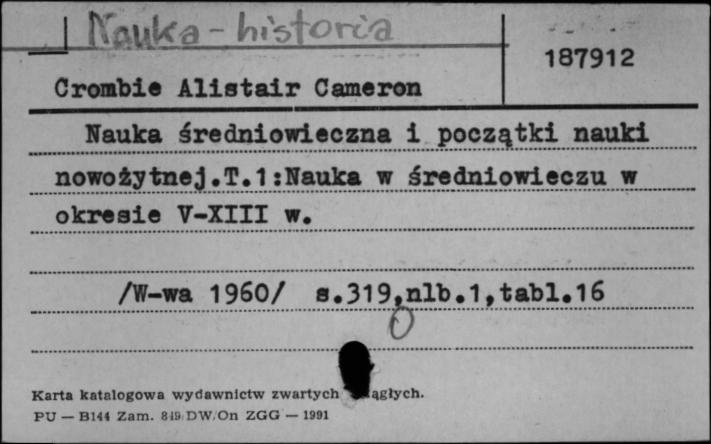 Nauka - historia
187912
Crombie Alistair Cameron
Nauka średniowieczna i początki nauki
nowożytnej.T.1:Nauka w średniowieczu w
okresie V-XIII w.
/W-wa 1960/ s.319,nlb.1,tabl.16
Karta katalogowa wydawnictw zwartych
PU — B144 Zam. 849 DW/On ZGG — 1991